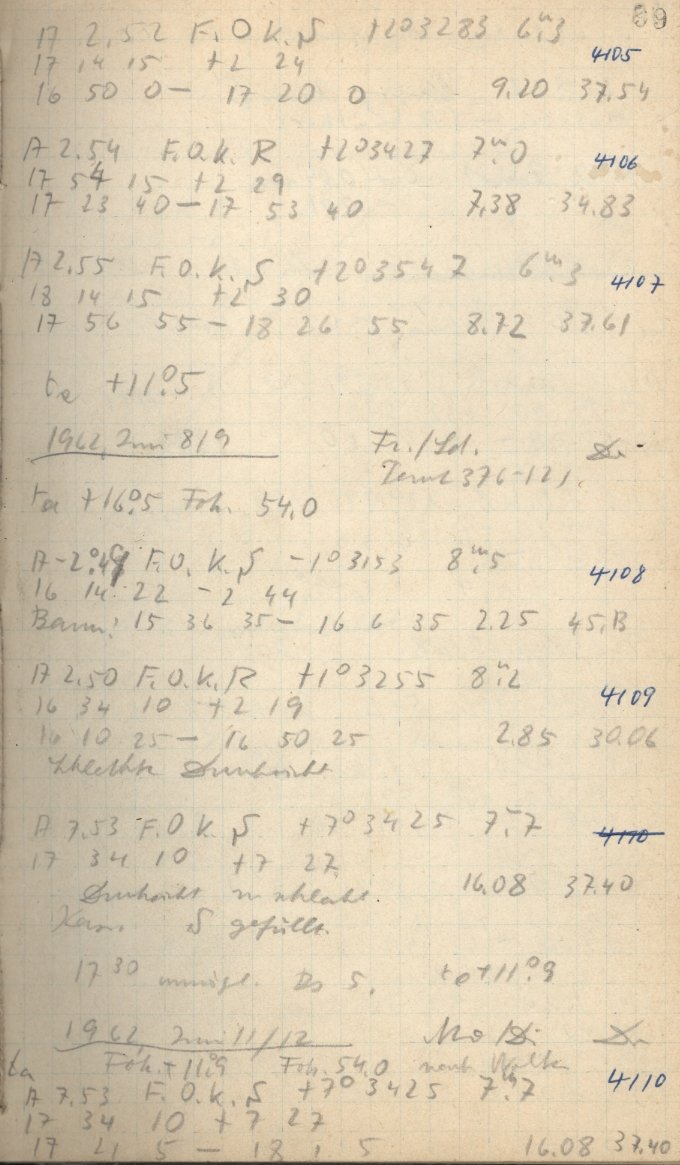 89
A 2.52 F.O.K.S +2°3283 6ᵐ.3
17 14 15 +2 24 4105
16 50 0 — 17 20 0 9.20 37.54
A 2.54 F.O.K.R +2°3427 7ᵐ.0
17 54 15 +2 29 4106
17 23 40 — 17 53 40 7.38 34.83
A 2.55 F.O.K.S +2°3547 6ᵐ.3
18 14 15 +2 30 4107
17 56 55 — 18 26 55 8.72 37.61
te +11°.5
1962, Juni 8/9 Fr./Sd.
376-121.
ta +16°.5 Fok. 54.0
A -2.49 F.O.K.S -1°3153 8ᵐ.5
16 14 22 -2 44 4108
15 36 35 — 16 6 35 2.25 45.13
A 2.50 F.O.K.R +1°3255 8ᵐ.2
16 34 10 +2 19 4109
16 10 25 — 16 50 25 2.85 30.06
Schlechte Durchsicht
A 7.53 F.O.K.S +7°3425 7ᵐ.7 4110
17 34 10 +7 27
Durchsicht zu schlecht. 16.08 37.40
Kass. S gefüllt.
17 30 te +11°.9
1962, Juni 11/12 Mo/Di
ta Fok. +11°.9 Fok. 54.0 nach
A 7.53 F.O.K.S +7°3425 7ᵐ.7 4110
17 34 10 +7 27
17 41 5 — 18 1 5 16.08 37.40